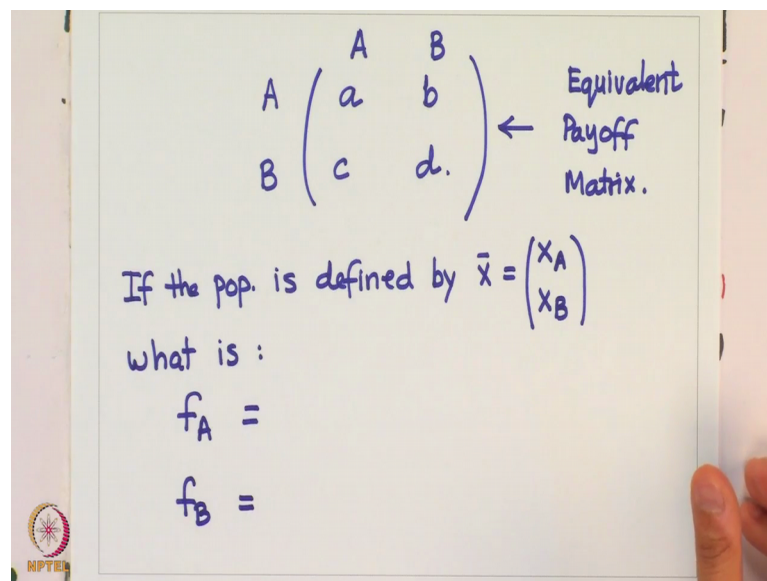 A B
A ( a b ) ← Equivalent
Payoff
B ( c d. ) Matrix.
If the pop. is defined by x̄ = (x_A
x_B)
what is :
f_A =
f_B =
NPTEL